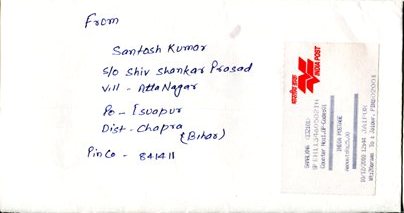 From
Santosh Kumar
S/o Shiv Shankar Prasad
Vill - Atta Nagar
Po - Isuapur
Dist - Chapra
(Bihar)
Pin Co - 841411
भारतीय डाक
INDIA POST
INDIA POSTAGE